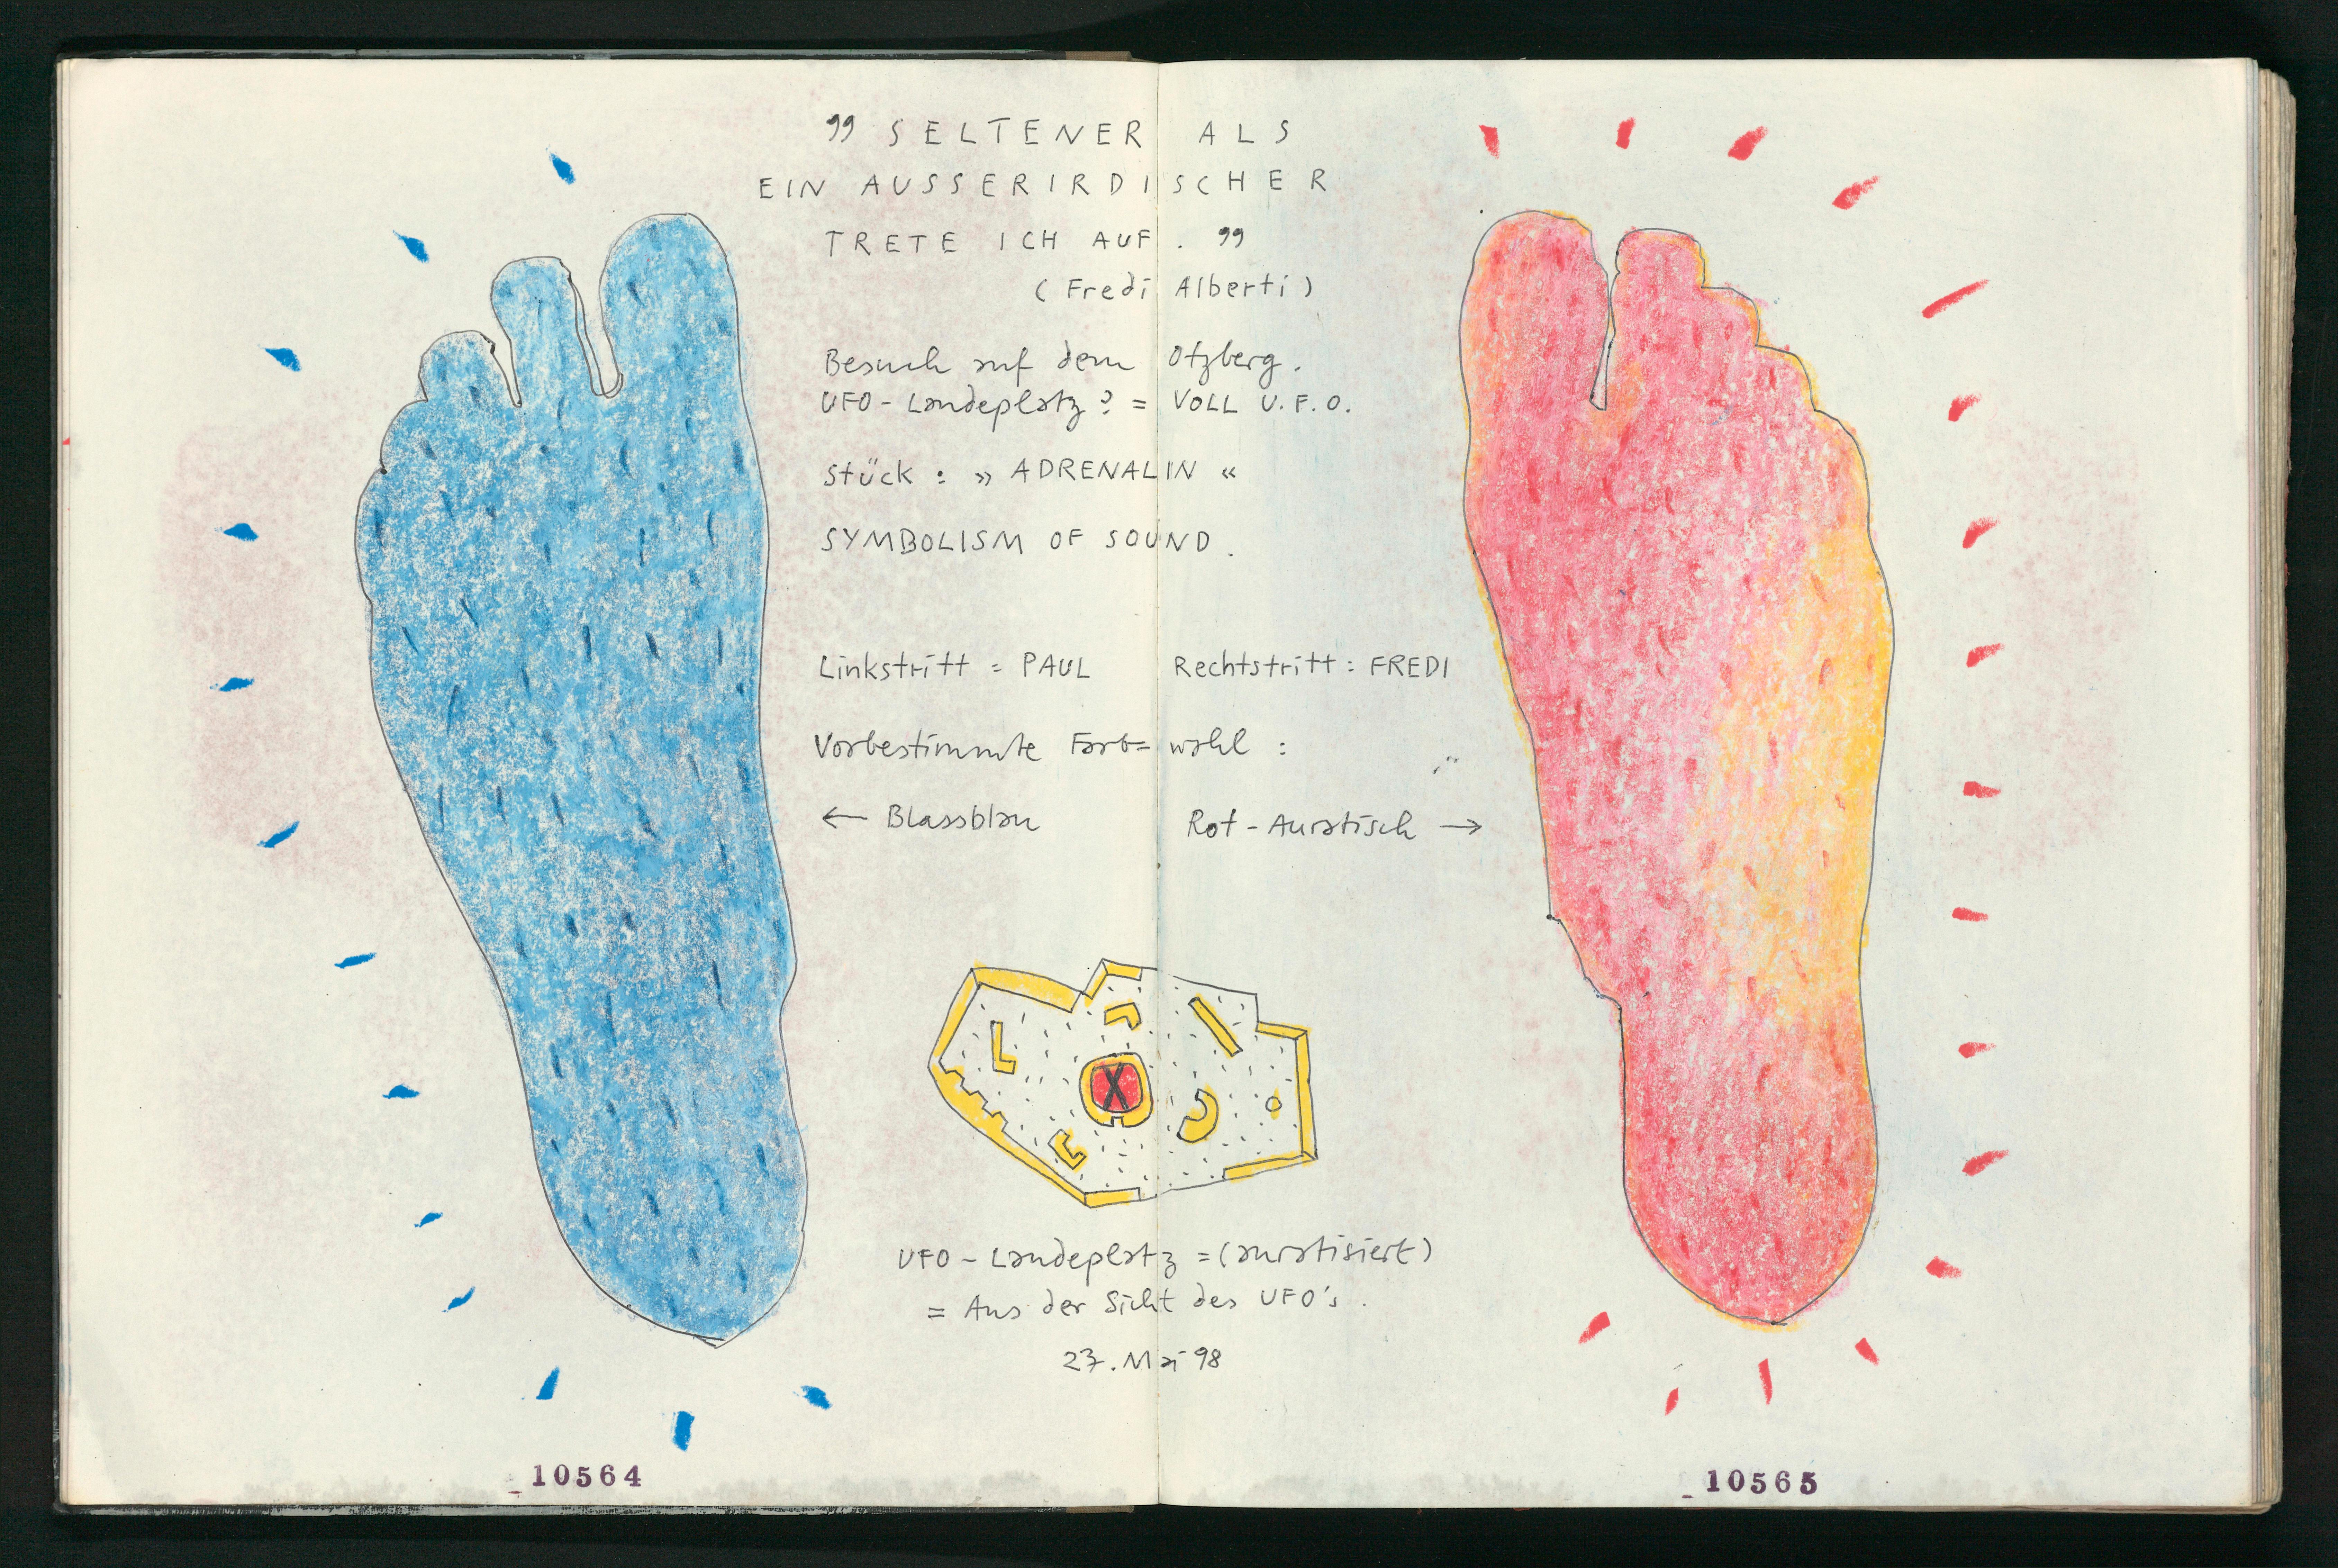 ❞ SELTENER ALS
EIN AUSSERIRDISCHER
TRETE ICH AUF. ❞
(Fredi Alberti)
Besuch auf dem Otzberg.
UFO-Landeplatz? = VOLL U.F.O.
Stück: » ADRENALIN «
SYMBOLISM OF SOUND.
Linkstritt = PAUL Rechtstritt: FREDI
Vorbestimmte Farb=wahl:
← Blassblau Rot-Auratisch →
X
UFO-Landeplatz = (auratisiert)
= Aus der Sicht des UFO's.
27. Mai 98
10564
10565